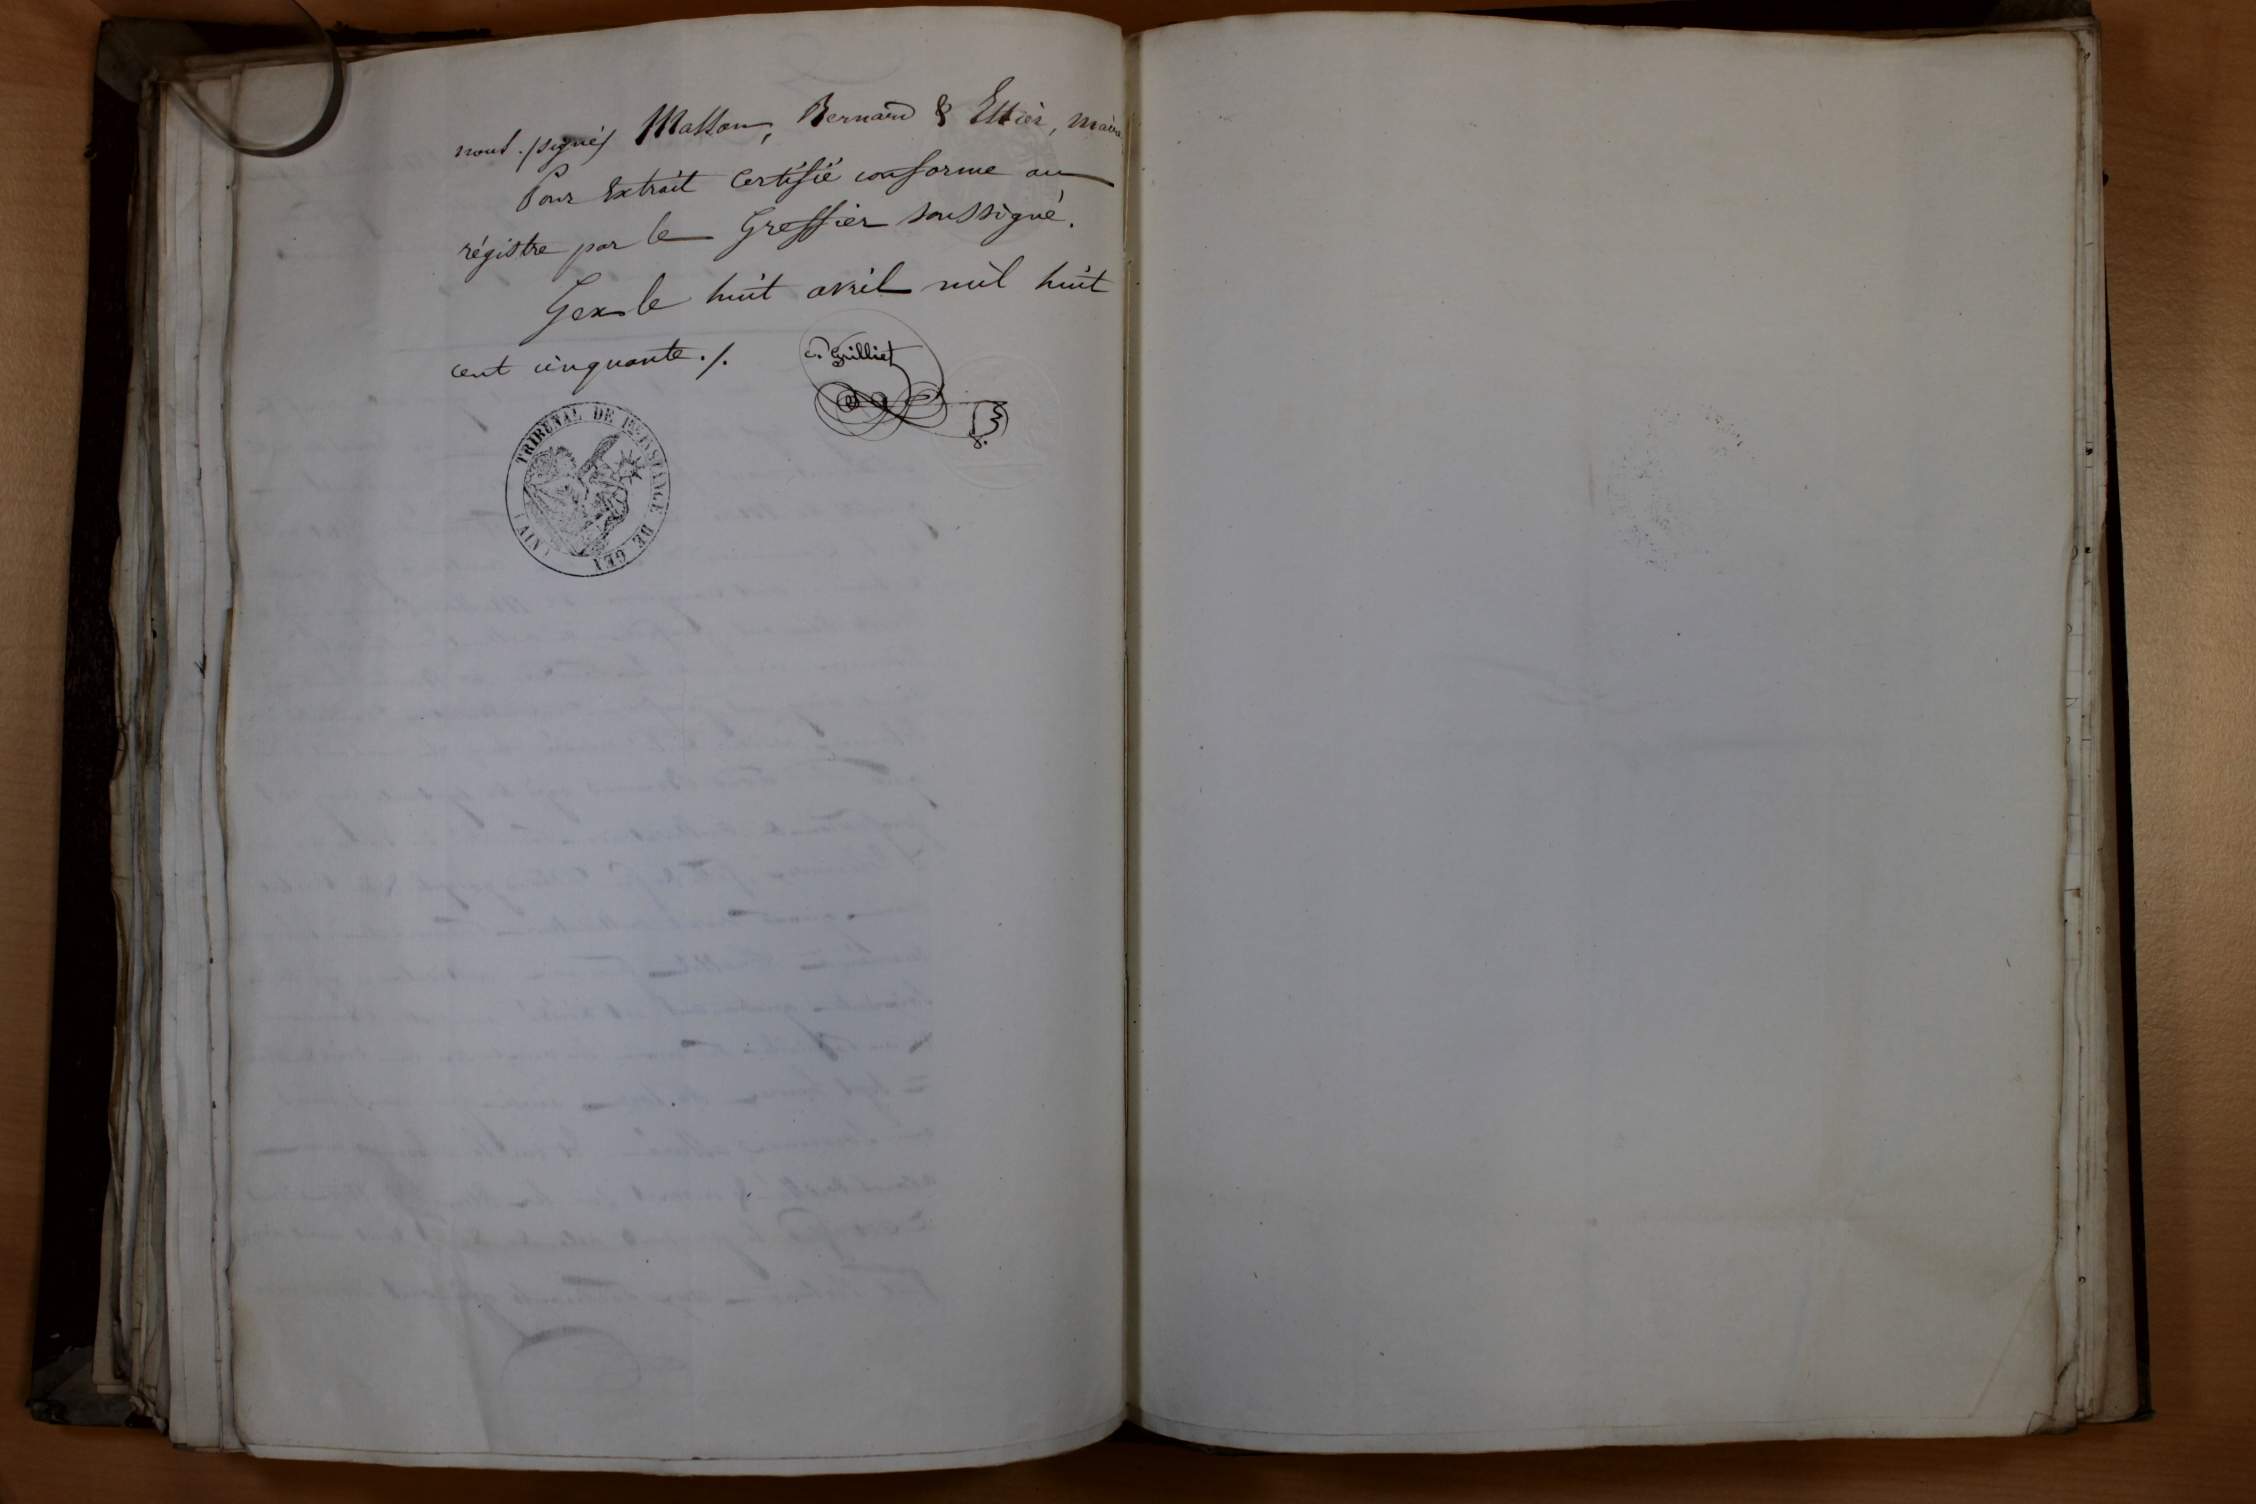 nous. /signé/ Masson, Bernard & Ettier, maire
Pour Extrait Certifié conforme au
régistre par le Greffier soussigné.
Gex le huit avril mil huit
cent cinquante ./.
Grilliet
TRIBUNAL DE 1RE INSTANCE DE GEX (AIN)